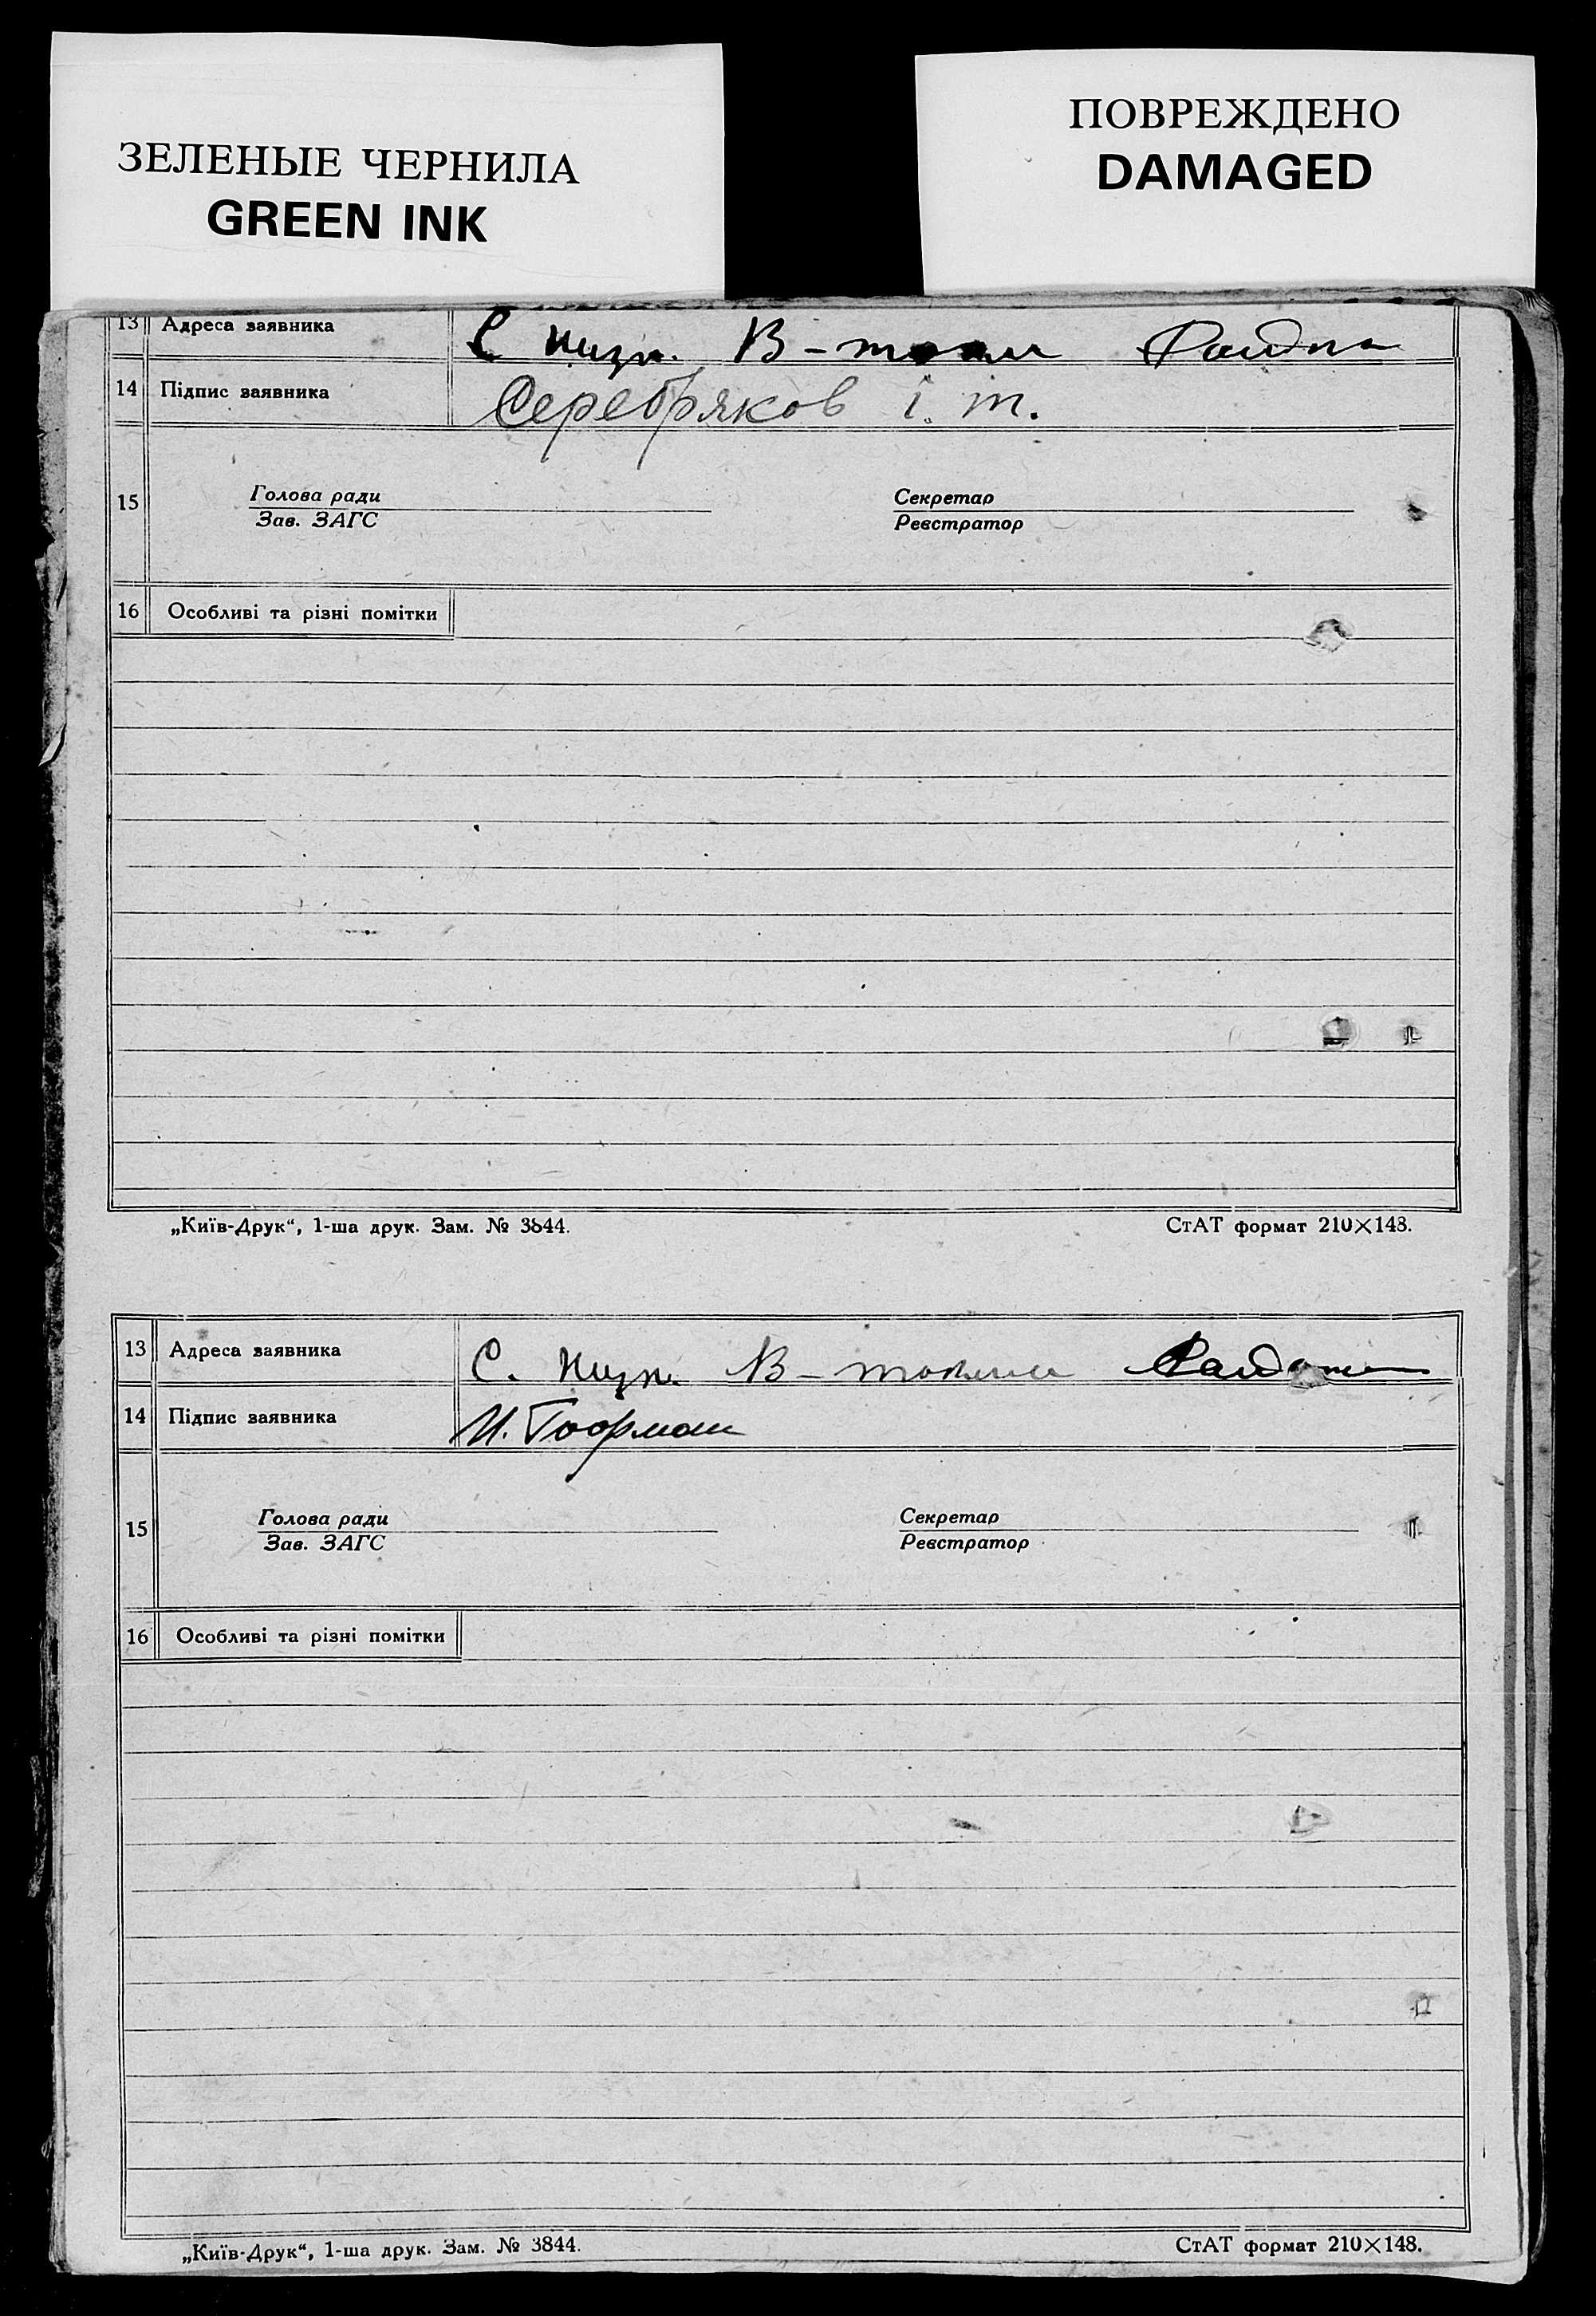 ЗЕЛЕНЫЕ ЧЕРНИЛА
GREEN INK
ПОВРЕЖДЕНО
DAMAGED
13 Адреса заявника С
14 Підпис заявника Серебряков і. т.
15 Голова ради Секретар
Зав. ЗАГС Реєстратор
16 Особливі та різні помітки
„Київ-Друк“, 1-ша друк. Зам. № 3844. СтАТ формат 210×148.
13 Адреса заявника С.
14 Підпис заявника И.
15 Голова ради Секретар
Зав. ЗАГС Реєстратор
16 Особливі та різні помітки
„Київ-Друк“, 1-ша друк. Зам. № 3844. СтАТ формат 210×148.